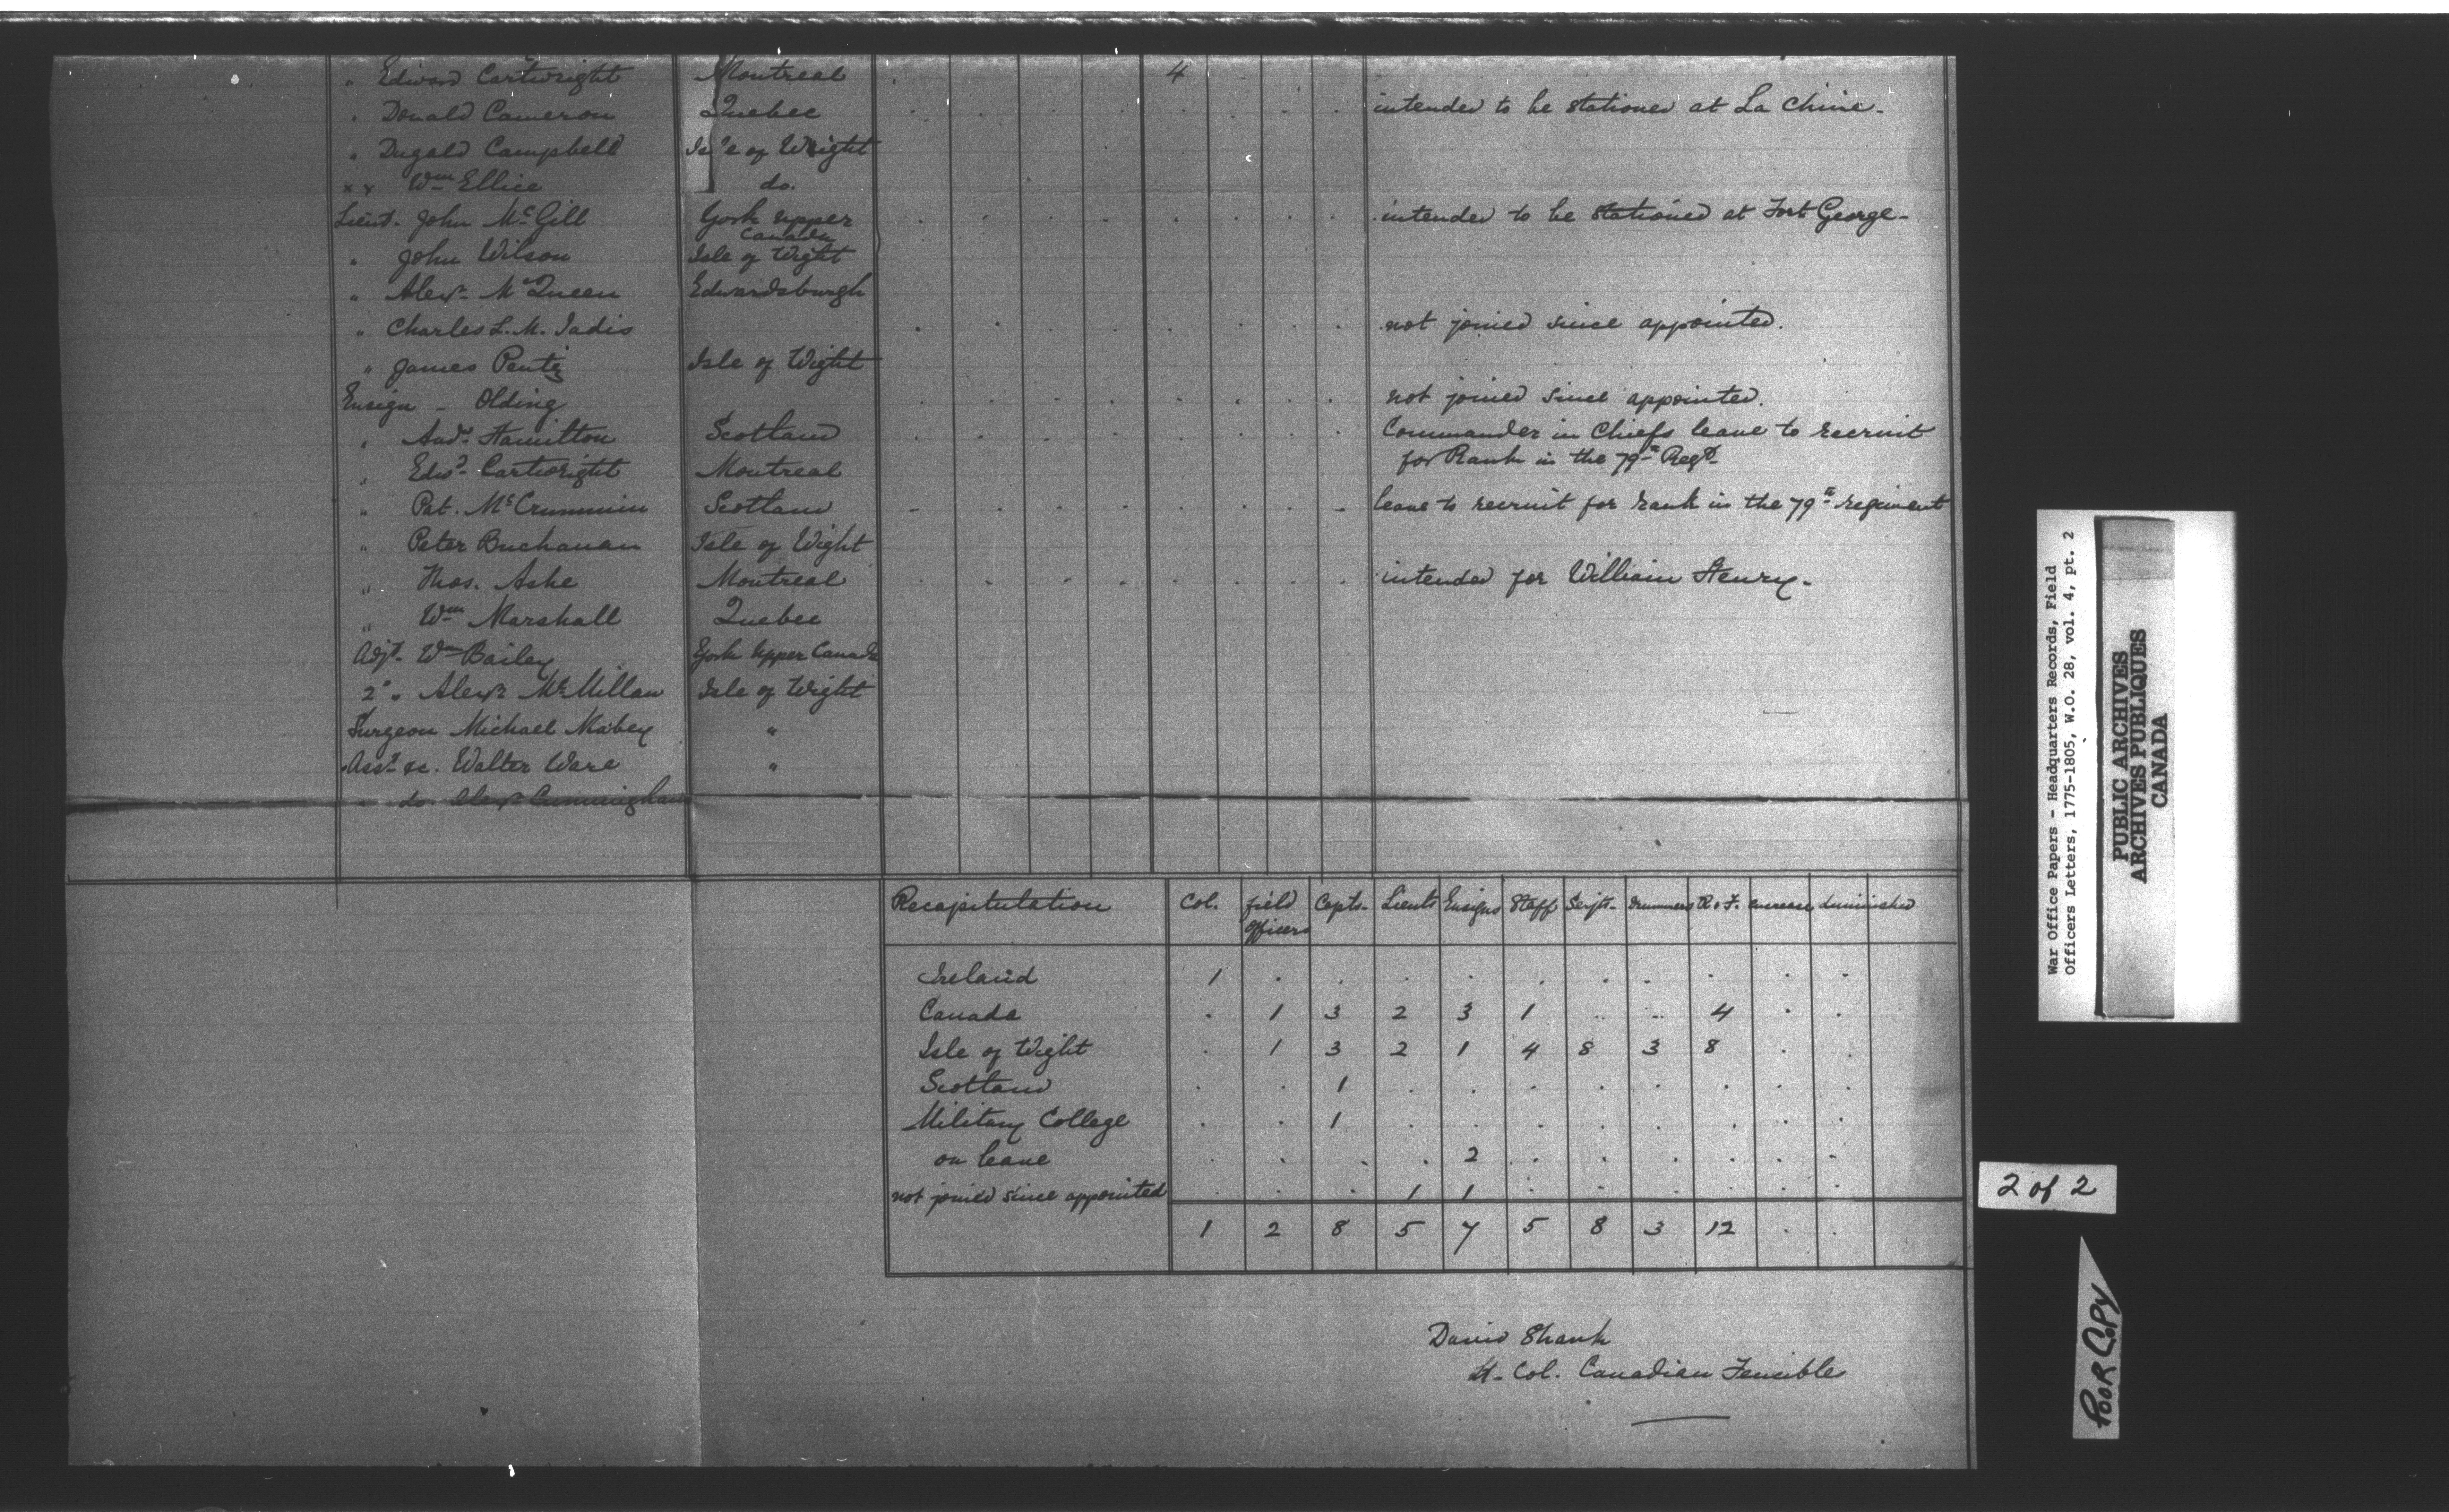 " Edward Cartwright Montreal 4
" Donald Cameron Quebec intended to be stationed at La Chine-
" Dugald Campbell Isle of Wight
x x Wm Ellice do.
Lieut. John McGill York upper Canada intended to be stationed at Fort George-
" John Wilson Isle of Wight
" Alexr McQueen Edwardsburgh
" Charles L. M. Iadis not joined since appointed.
" James Pentz Isle of Wight
Ensign - Olding not joined since appointed.
" Andw Hamilton Scotland Commander in Chiefs leave to recruit
for Rank in the 79th Regt
" Edwd Cartwright Montreal
" Pat. McCrummin Scotland leave to recruit for rank in the 79th regiment
" Peter Buchanan Isle of Wight
" Thos. Ashe Montreal intended for William Henry-
" Wm Marshall Quebec
Adjt Wm Bailey York Upper Canada
2d " Alexr McMillan Isle of Wight
Surgeon Michael Mabey "
Asst &c. Walter Ware "
do Alexr Cunningham
Recapitulation Col. field officers Capts. Lieuts Ensigns Staff Serjts. Drummers R & F. increase diminished
Ireland 1
Canada 1 3 2 3 1 4
Isle of Wight 1 3 2 1 4 8 3 8
Scotland 1
Military College 1
on leave 2
not joined since appointed 1 1
1 2 8 5 7 5 8 3 12
David Shank
Lt. Col. Canadian Fencibles
War Office Papers - Headquarters Records, Field
Officers Letters, 1775-1805, W.O. 28, vol. 4, pt. 2
PUBLIC ARCHIVES
ARCHIVES PUBLIQUES
CANADA
2 of 2
POOR COPY